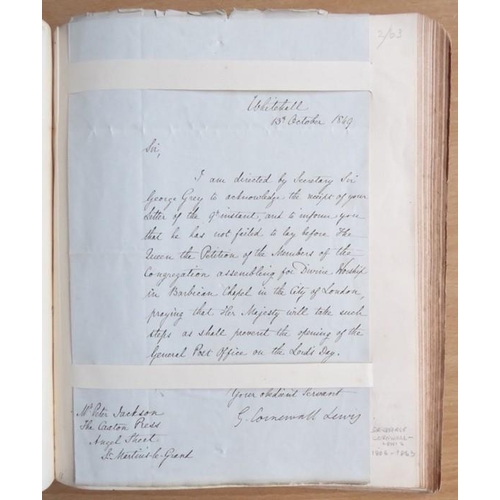 2/63
Whitehall
13th October 1849
Sir,
I am directed by Secretary Sir
George Grey to acknowledge the receipt of your
letter of the 9th instant, and to inform you
that he has not failed to lay before The
Queen the Petition of the Members of the
Congregation assembling for Divine Worship
in Barbican Chapel in the City of London,
praying that Her Majesty will take such
steps as shall prevent the opening of the
General Post Office on the Lord's Day.
Your obedient Servant
G. Cornewall Lewis
Mr. Peter Jackson
The Caxton Press
Angel Street
St. Martins-le-Grand
CORNWALL-
LEWIS
1806-1863